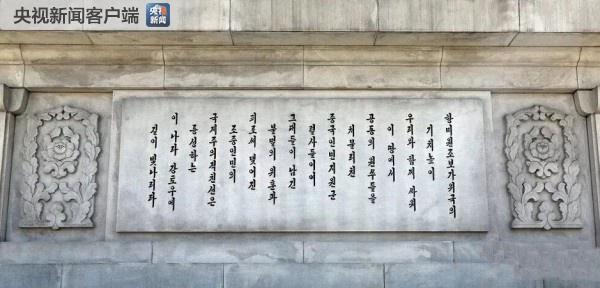 央视新闻客户端
央视新闻
항미원조보가위국의
기치높이
우리와 함께 싸워
이 땅에서
공동의 원쑤들을
쳐물리친
중국인민지원군
렬사들이여
그대들이 남긴
불멸의 위훈과
피로써 맺어진
조중인민의
국제주의적친선은
륭성하는
이 나라 강토우에
길이 빛나리라